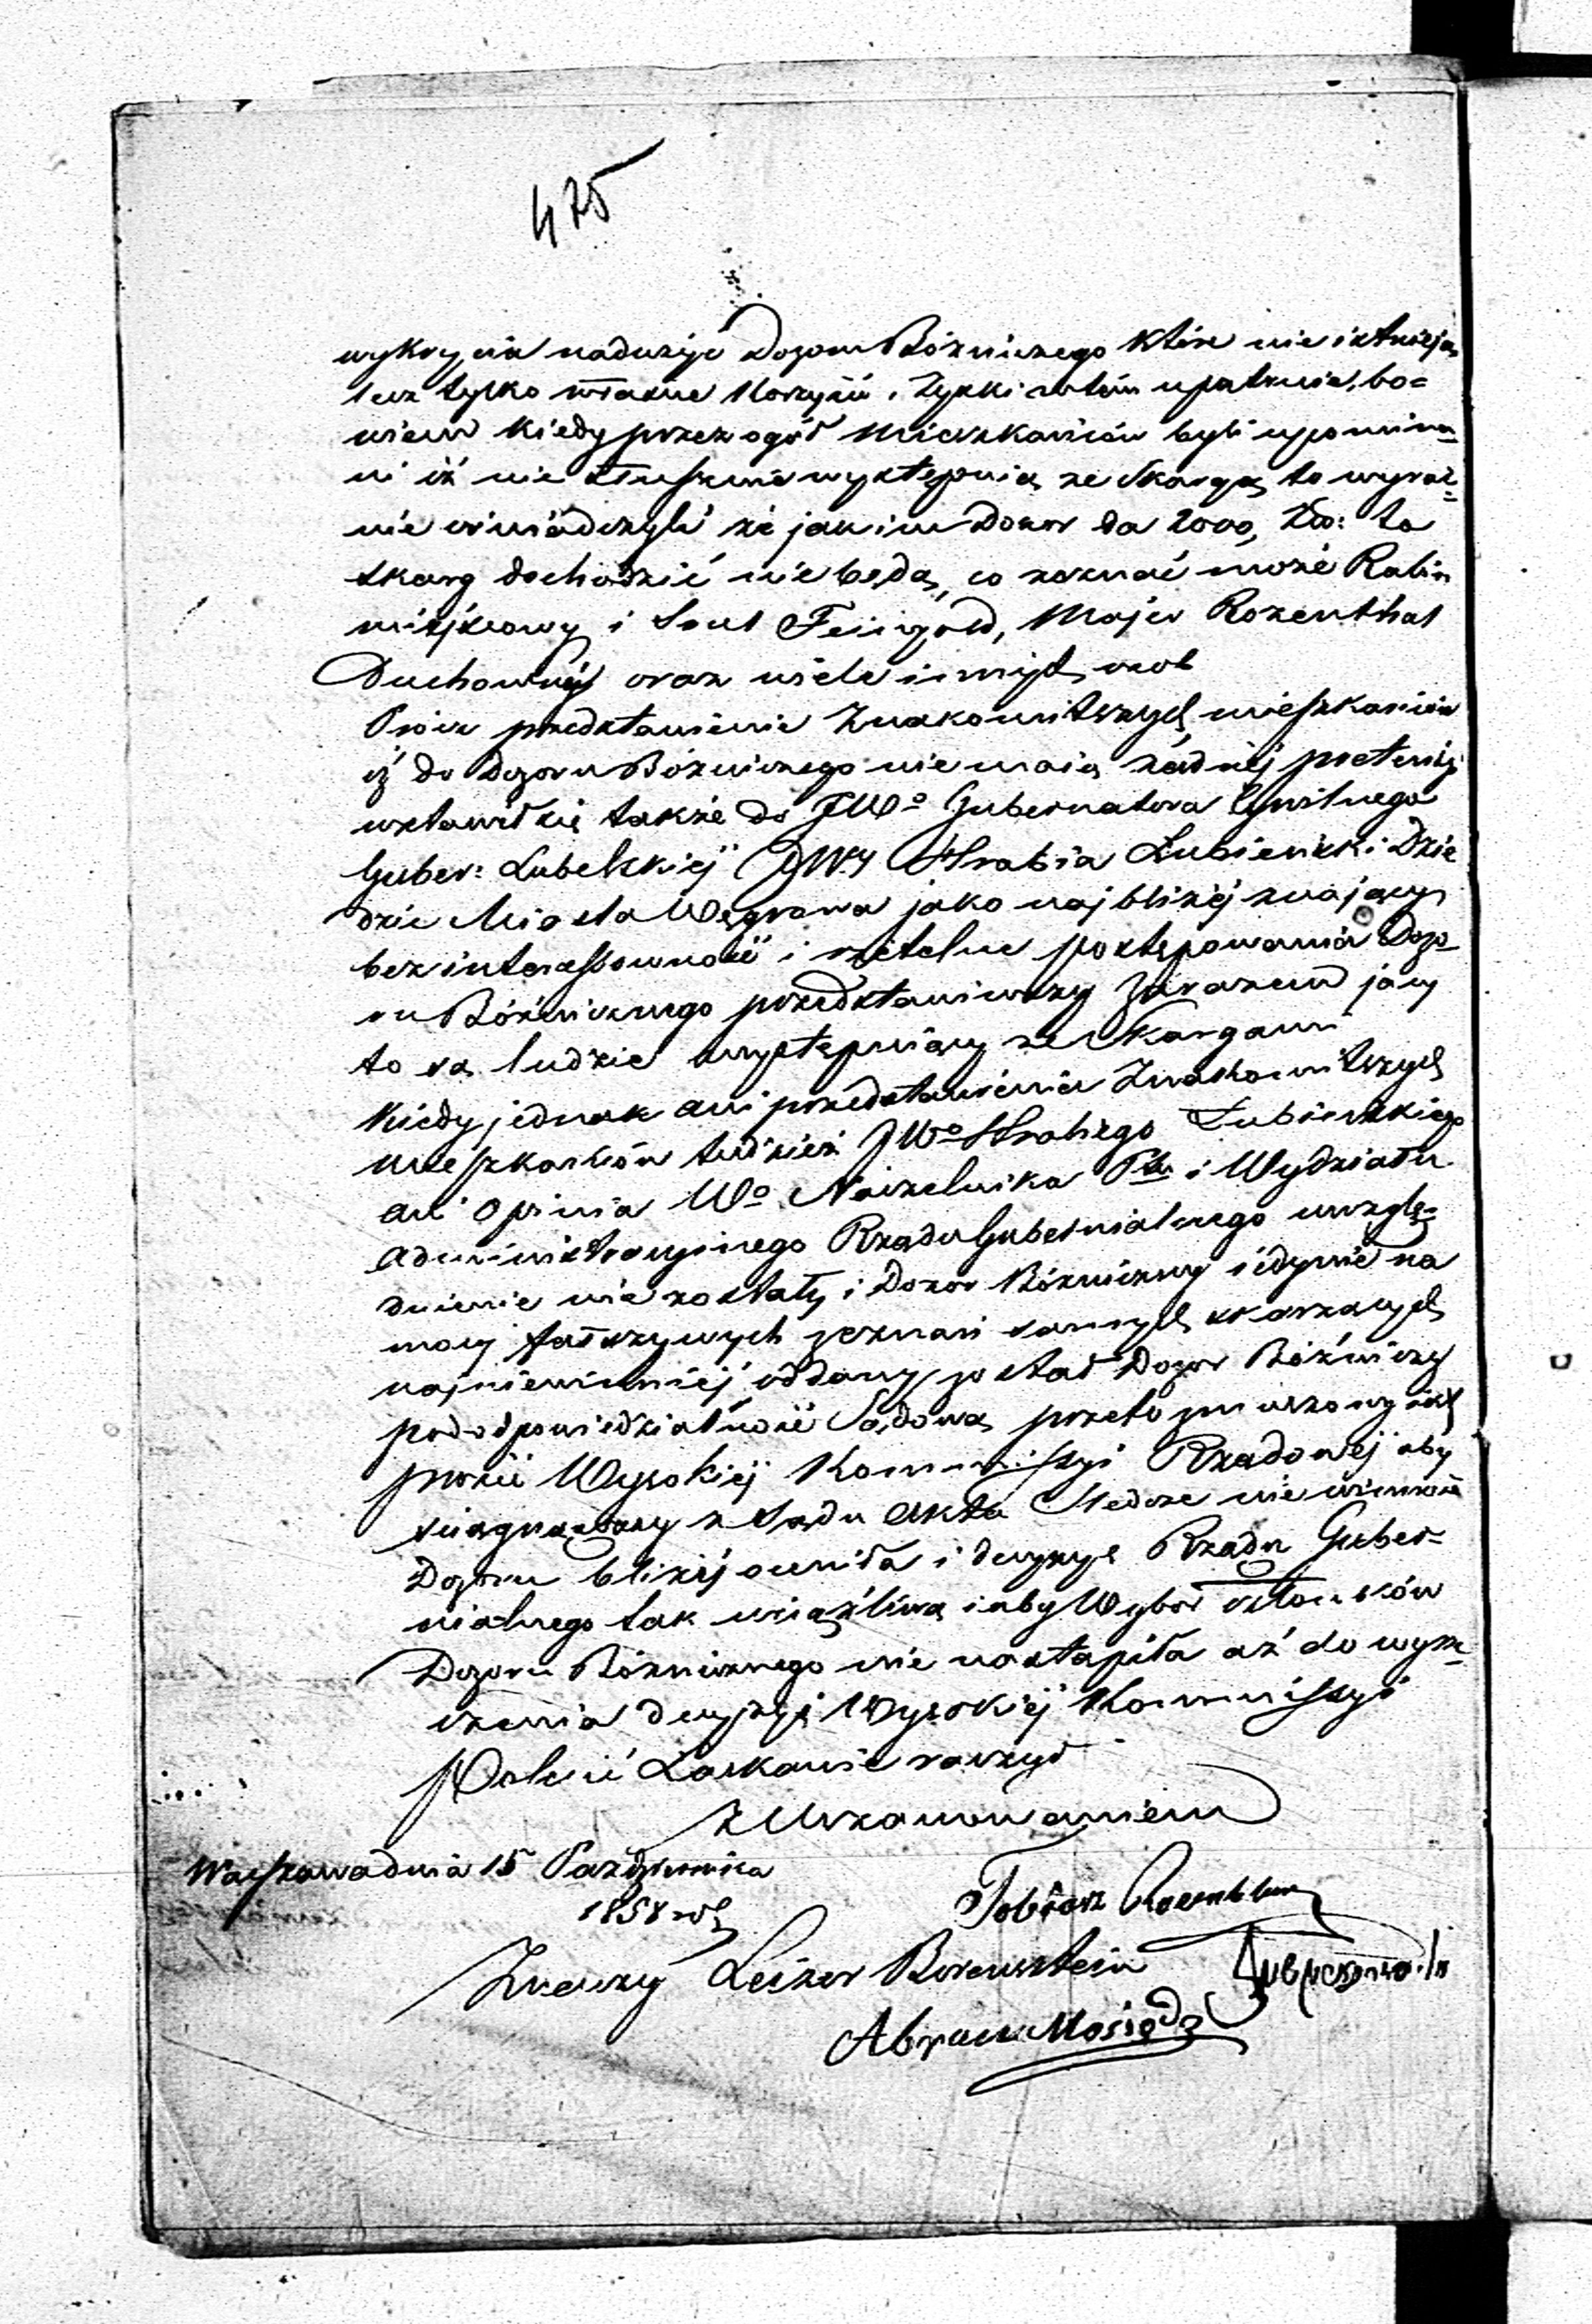 475
wykrycia nadużyć Dozoru Bóżniczego które nie istnieją
lecz tylko własne Korzyści i Zyski w tem upatruią, bo=
wiem kiedy przez ogół Mieszkańców byli upomina=
ni iż nie słusznie występuią ze Skargą to wyraź=
nie oświadczyli że jak im Dozor da 2000 Złp: to
skarg dochodzić nie będą, co zeznać może Rabin
miejscowy i Saul Feingold, Majer Rozenthal
Duchowny oraz wiele innych osob
Prócz przedstawienia Znakomitszych mieszkańców
iż do Dozoru Bóżniczego nie maią żadnej pretensji
wstawił się także do JWo Gubernatora Cywilnego
Guber: Lubelskiej JWny Hrabia Łubieński Dzie
dzic Miasta Węgrowa jako najbliżej znający
bezinteressowność i rzetelne postępowania Dozo=
ru Bóżniczego przedstawiwszy zarazem jacy
to są ludzie występuiący ze Skargami
Kiedy jednak ani przedstawienia Znakomitszych
mieszkańców tudzież JWo Hrabiego Łubieńskiego
ani Opinia Wo Naczelnika Ptu i Wydziału
Administracyinego Rządu Gubernialnego uwzglę=
dnienie nie zostały i Dozor Bóżniczny iedynie na
mocy fałszywych zeznań samych skarzących
najniewinniej oddany został Dozor Bóżniczy
pod odpowiedzialność Sądową przeto zmuszony iest
prosić Wysokiej Kommissyi Rządowej aby
ściągnąwszy z Sądu Akta Śledcze nie winność
Dozoru bliżej oceniła i decyzye Rządu Guber=
nialnego tak uciążliwa i aby Wybor członków
Dozoru Bóżniczego nie nastąpiła aż do wyrze=
czenia decyzyi Wysokiej Kommissyi
Polecić Łaskawie raczył
z Uszanowaniem
Warszawa dnia 15 Października
1858 rok
Tobiasz Rosenblum
Leizor Borensztein
Abram Mosiądz